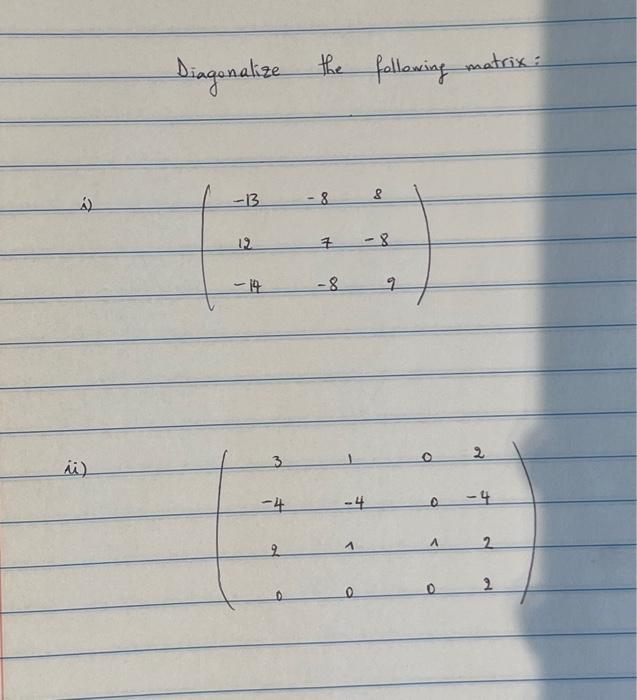 Diagonalize the following matrix:
i)
-13 -8 8
12 7 -8
-14 -8 9
ii)
3 1 0 2
-4 -4 0 -4
2 1 1 2
0 0 0 2